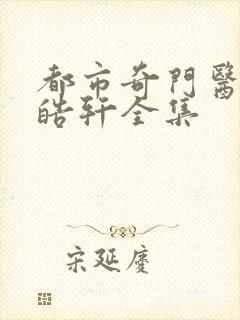 都市奇門醫
皓軒全集
宋延慶